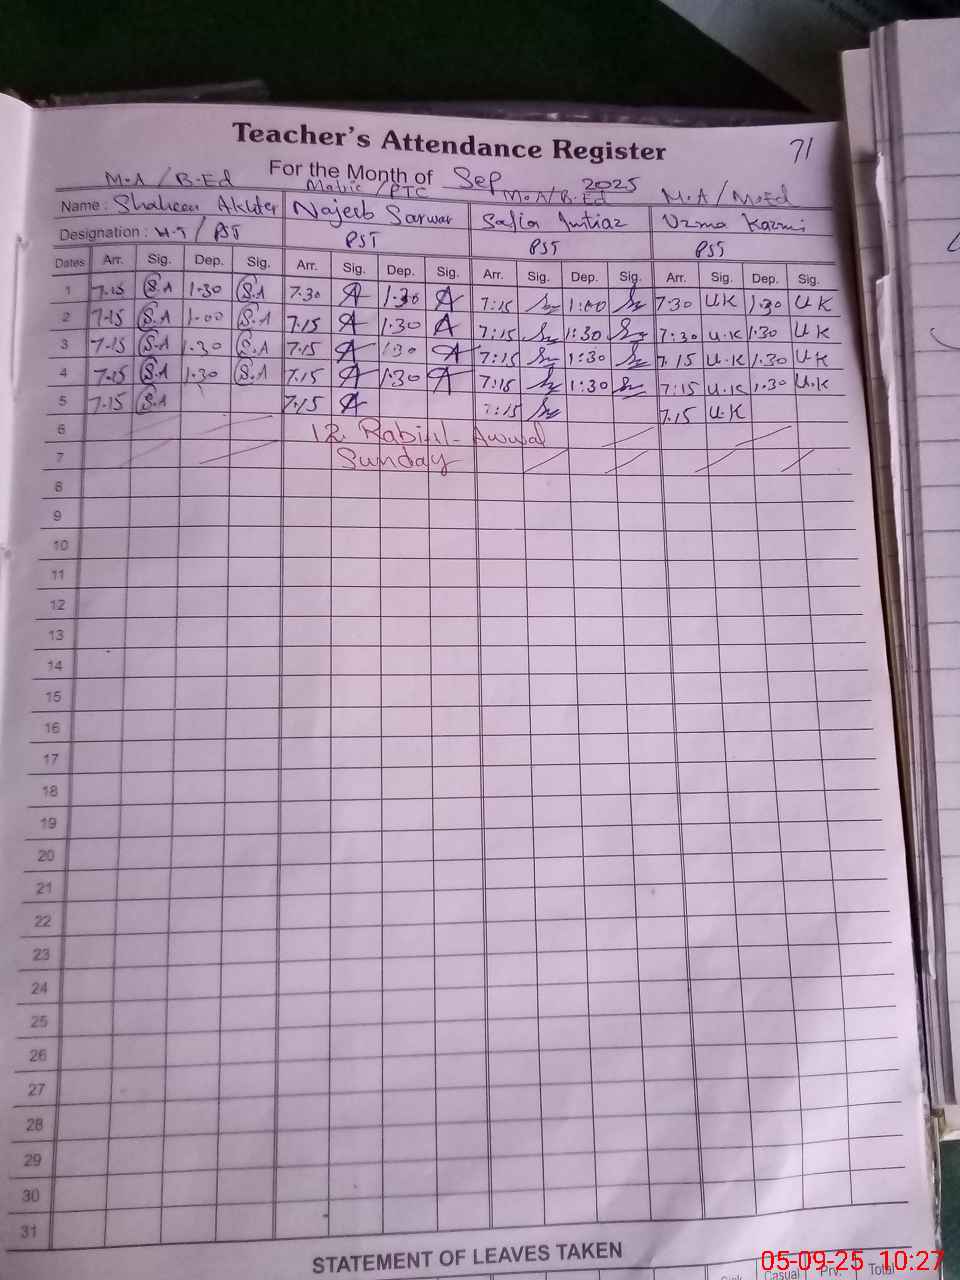 Teacher's Attendance Register
71
For the Month of Sep 2025
M.A / B-Ed Matric / PTC M.A/B.Ed M.A / M.Ed
Name : Shaheen Akhter Najeeb Sarwar Safia Imtiaz Uzma Kazmi
Designation : H-T / PST PST PST PST
Dates Arr. Sig. Dep. Sig. Arr. Sig. Dep. Sig. Arr. Sig. Dep. Sig. Arr. Sig. Dep. Sig.
1 7-15 S.A 1-30 S.A 7.30 1.30 7:15 1:00 7:30 U.K 1.30 U K
2 7-15 S.A 1-00 S.A 7.15 1.30 7:15 1:30 7:30 U.K 1.30 U K
3 7-15 S.A 1-30 S.A 7.15 1.30 7:15 1:30 7.15 U.K 1.30 U.K
4 7-15 S.A 1.30 S.A 7.15 1.30 7:15 1:30 7:15 U.K 1.30 U.K
5 7-15 S.A 7.15 7:15 7.15 U.K
6 12. Rabiul-Awwal
7 Sunday
8
9
10
11
12
13
14
15
16
17
18
19
20
21
22
23
24
25
26
27
28
29
30
31
STATEMENT OF LEAVES TAKEN
Casual Prv. Total
05-09-25 10:27